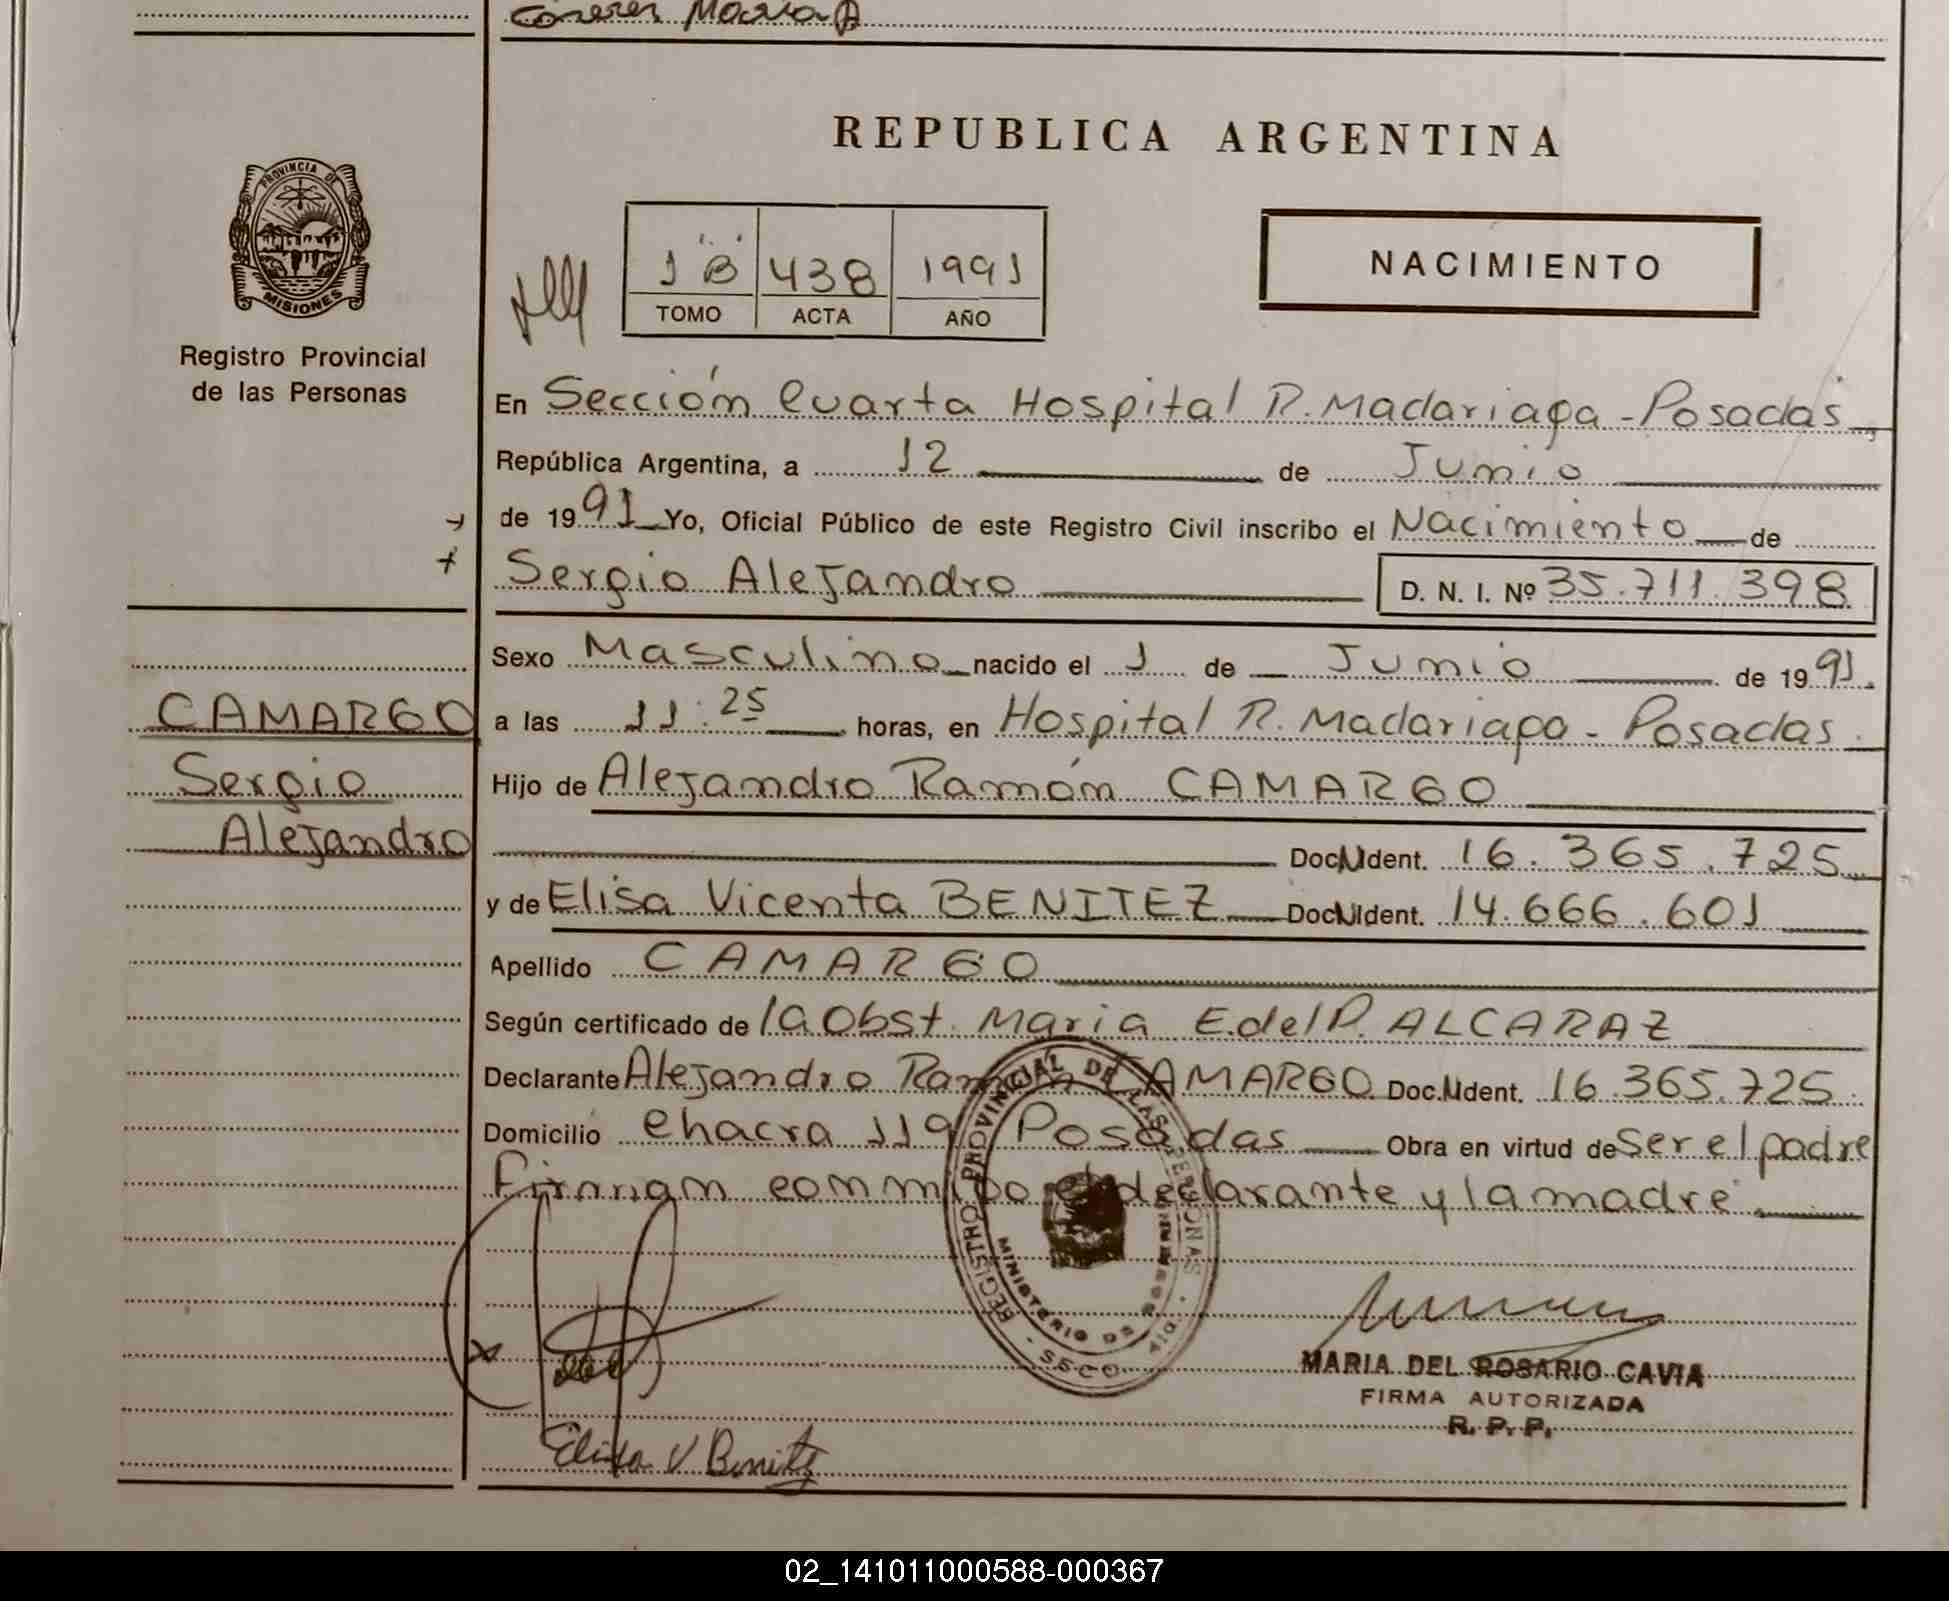 Caseres Maria A
REPUBLICA ARGENTINA
PROVINCIA DE
MISIONES
Registro Provincial
de las Personas
1 B 438 1991
TOMO ACTA AÑO
NACIMIENTO
En Sección Cuarta Hospital R. Madariaga - Posadas
República Argentina, a 12 de Junio
de 1991 Yo, Oficial Público de este Registro Civil inscribo el Nacimiento de
Sergio Alejandro D. N. I. Nº 35.711.398
Sexo Masculino nacido el 1 de Junio de 1991.
a las 11:25 horas, en Hospital R. Madariaga - Posadas.
Hijo de Alejandro Ramón CAMARGO
Doc. Ident. 16.365.725
y de Elisa Vicenta BENITEZ Doc. Ident. 14.666.601
Apellido CAMARGO
Según certificado de la Obst. Maria E. del P. ALCARAZ
Declarante Alejandro Ramón CAMARGO Doc. Ident. 16.365.725
Domicilio Chacra 119 Posadas Obra en virtud de Ser el padre
Firman conmigo el declarante y la madre
CAMARGO
Sergio
Alejandro
REGISTRO PROVINCIAL DE LAS PERSONAS
MINISTERIO DE
MARIA DEL ROSARIO CAVIA
FIRMA AUTORIZADA
R. P. P.
Elisa V Benitez
02_141011000588-000367